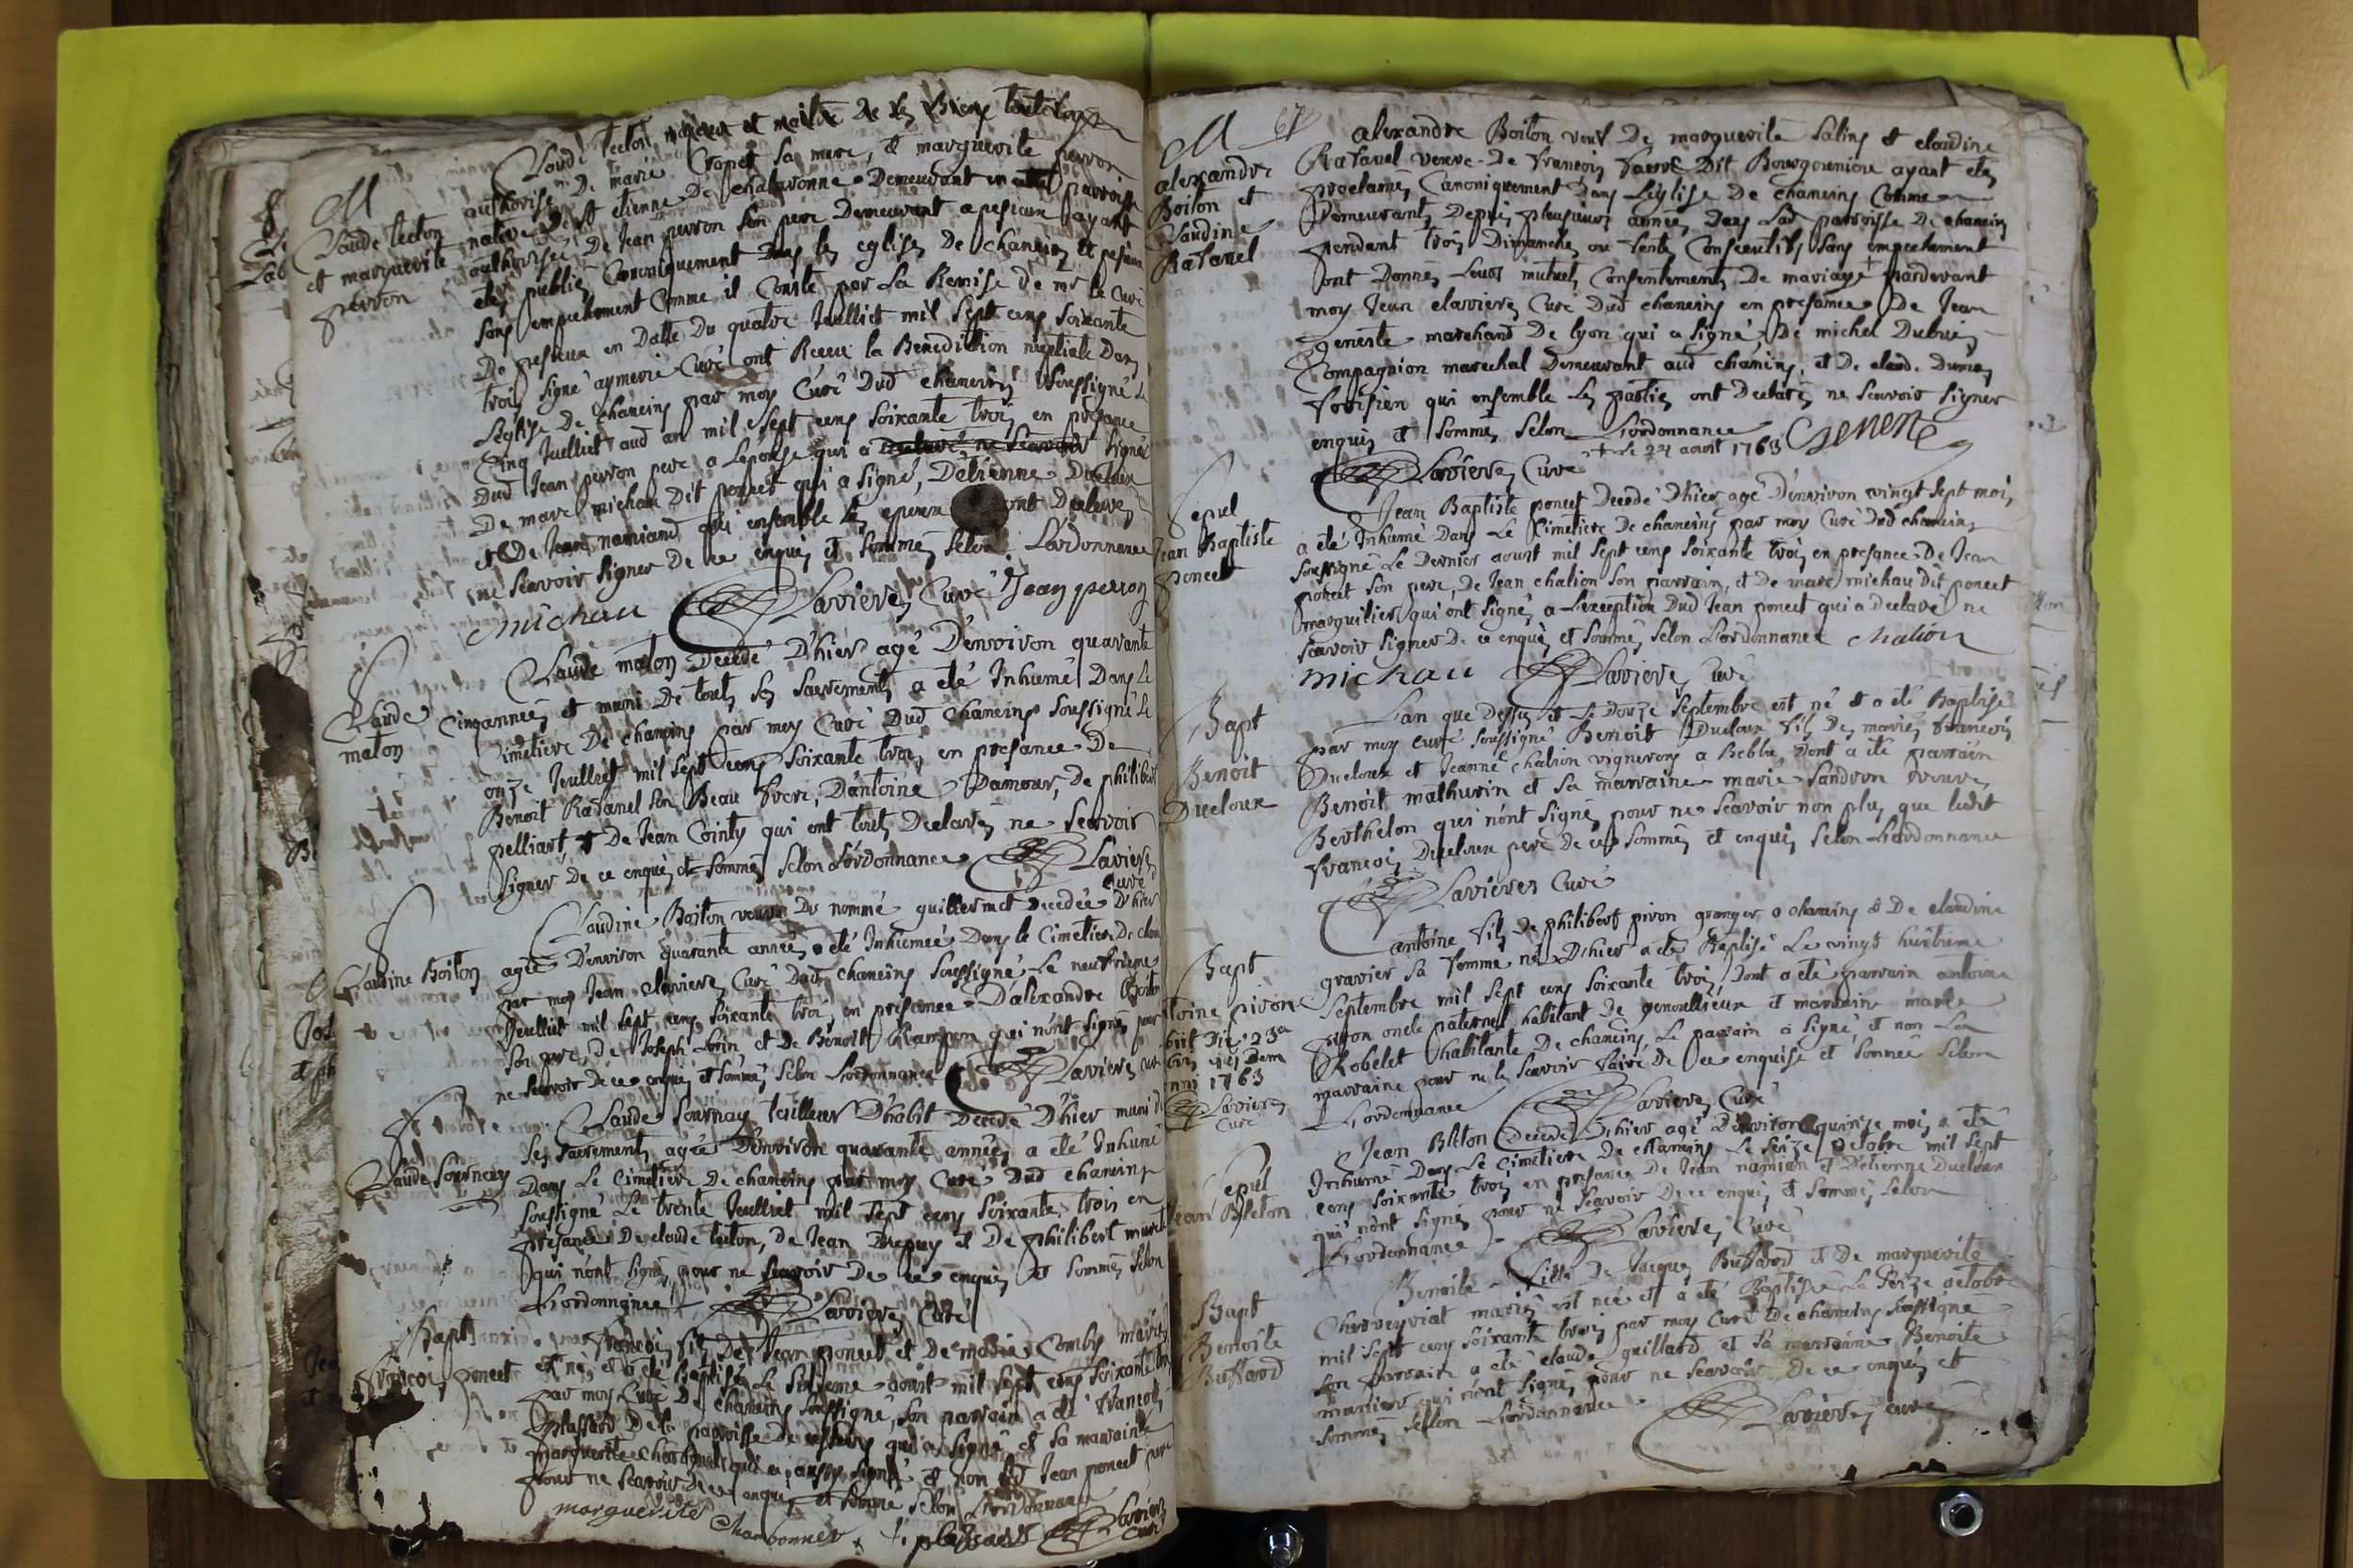 M
Claude tecton
et marguerite
perron
Claude tecton majeur et maitre de ses Biens
authorisé de marie Cropet sa mere, et marguerite perron
native de St etienne De chalaronne Demeurant en
authorisée De Jean perron son pere Demeurant a peizieux ayant
etes publies Canoniquement Dans les eglises De chaneins et
sans empechement Comme il Conste par La Remise de mr le Curé
De en Datte Du quatre Jeulliet mil sept cens soixante
trois signé aymerie Curé ont Receu la Benediction nuptiale Dans
L'eglise De chaneins par moy Curé Dud chaneins soussigné Le
Cinq Jeulliet aud an mil sept cens soixante trois en presance
Dud Jean perron pere a L'epouse qui a signé
De marc michau Dit poncet qui a signé, D'etienne Ducloux
et De Jean namiand qui ensemble les ont Declarés
ne scavoir signer De ce enquis et sommés selon L'ordonnance
michau Clavieres Curé Jean perron
Claude
maton
Claude maton Decedé D'hier agé D'environ quarante
Cinq années et muni De touts ses sacrements a eté Inhumé Dans Le
Cimetiere De chaneins par moy Curé Dud chaneins soussigné Le
onze Jeulliet mil sept cens soixante trois en presance De
Benoit Ravanel son Beau frere, D'antoine Damour, De philibert
pelliart, et De Jean Cointy qui ont touts Declarés ne scavoir
signer De ce enquis et sommés selon L'ordonnance Clavieres
Curé
Claudine Boiton
Claudine Boiton veuve Du nommé guillermet Decedée D'hier
agée D'environ quarante années a eté Inhumée Dans le Cimetiere De
par moy Jean Clavieres Curé Dud chaneins soussigné Le
Jeulliet mil sept cens soixante trois en presance D'alexandre
son pere, De Joseph Lorin et De Benoit Rampon qui n'ont signés pour
ne scavoir de ce enquis et sommés selon L'ordonnance Clavieres
Claude Sournay
Claude Sournay tailleur D'habit Decedé D'hier muni De
ses sacrements agée D'environ quarante années a eté Inhumé
Dans Le Cimetiere De chaneins par moy Curé Dud chaneins
soussigné Le trente Jeulliet mil sept cens soixante trois en
presance De claude tecton, de Jean et De philibert
qui n'ont signés pour ne scavoir De ce enquis et sommés selon
L'ordonnance Clavieres Curé
Bapt
François poncet
François fils De Jean poncet et De marie Comby mariés
est né et a eté Baptisé Le sixieme aoust mil sept cens soixante trois
par moy Curé De chaneins soussigné, son parrain a eté François
plassard De la parroisse De qui a signé et sa marraine
marguerite qui a aussy signé et non led Jean poncet pere
pour ne scavoir De ce enquis et sommé selon L'ordonnance
marguerite Charbonner f. plassard Clavieres
Curé
67
M
alexandre
Boiton et
Claudine
Ravanel
alexandre Boiton veuf De marguerite Salins et claudine
Ravanel veuve De François favre Dit Bourgounion ayant etes
proclamés Canoniquement Dans L'eglise De chaneins Comme
Demeurants Depuis pleusieurs années Dans Lad parroisse De chaneins
pendant trois Dimanches ou festes Consecutifs sans empechement
ont Donnés Leurs mutuels Consentements De mariage + pardevant
moy Jean clavieres Curé Dud chaneins en presance De Jean
geneste marchand De lyon qui a signé, De michel Dubrui
Compagnion marechal Demeurant aud chaneins, et De claud. Dumas
qui ensemble Les parties ont Declarés ne scavoir signer
enquis et sommés selon L'ordonnance
+ Le 24 aoust 1763 Geneste
Clavieres Curé
Sepul
Jean Baptiste
poncet
Jean Baptiste poncet Decedé D'hier agé D'environ vingt sept mois
a eté Inhumé Dans Le Cimetiere De chaneins par moy Curé Dud chaneins
soussigné Le Dernier aoust mil sept cens soixante trois en presance De Jean
poncet son pere, De Jean chalion son parrain, et De marc michau dit poncet
marguillier qui ont signés a L'exception Dud Jean poncet qui a Declaré ne
scavoir signer De ce enquis et sommé selon L'ordonnance Chalion
michau Clavieres Curé
Bapt
Benoit
Ducloux
L'an que Dessus et Le Douze septembre est né et a eté Baptisé
par moy curé soussigné Benoit Ducloux fils Des mariés François
Ducloux et Jeanne Chalion vignerons a Beblu, Dont a eté parrain
Benoit mathurin et sa marraine marie sandron veuve
Berthelon qui n'ont signés pour ne scavoir non plus que ledit
François Ducloux pere De ce sommés et enquis selon L'ordonnance
Clavieres Curé
Bapt
antoine pivon
1763
Clavieres
Curé
antoine fils De philibert pivon granger a chaneins et De claudine
gravier sa femme né D'hier a eté Baptisé Le vingt huitieme
septembre mil sept cens soixante trois, Dont a eté parrain antoine
pivon oncle paternel habitant De genouillieux et marraine marie
Robelet habitante De chaneins, Le parrain a signé, et non La
marraine pour ne le scavoir faire De ce enquise et sommée selon
L'ordonnance Clavieres Curé
Sepul
Jean Bleton
Jean Bleton Decedé D'hier agé D'environ quinze mois a eté
Inhumé Dans Le Cimetiere De chaneins Le seize octobre mil sept
cens soixante trois en presance De Jean namian et D'etienne Ducloux
qui n'ont signés pour ne scavoir De ce enquis et sommés selon
L'ordonnance Clavieres Curé
Bapt
Benoite
Buffard
Benoite fille De Jacques Buffard et De marguerite
Cherveyriat mariés est née et a eté Baptisée Le seize octobre
mil sept cens soixante trois par moy Curé De chaneins soussigné
son parrain a eté claude guillard et sa marraine Benoite
manier qui n'ont signés pour ne scavoir De ce enquis et
sommés sellon L'ordonnance Clavieres curé